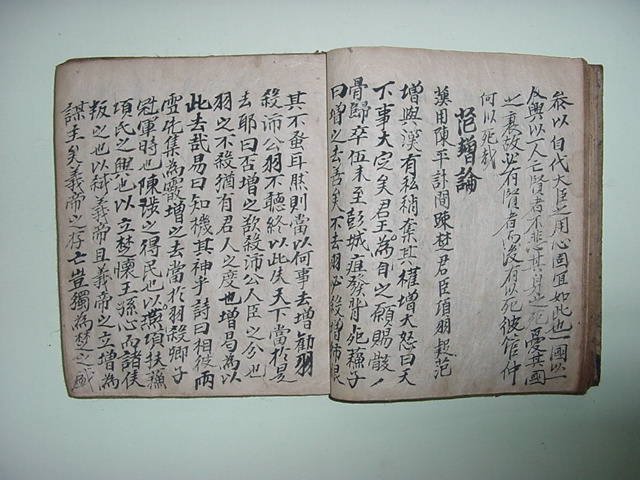 參以自代大臣之用心固宜如此也一國以一
人興以一人亡賢者不悲其身之死憂其國
之衰故必有賢者而後有以死彼管仲
何以死哉
范增論
漢用陳平計間陳楚君臣項羽疑范
增與漢有私稍奪其權增大怒曰天
下事大定矣君王為自之願賜骸
骨歸卒伍未至彭城疽發背死蘇子
曰增之去善矣不去羽必殺增恨
其不蚤耳然則當以何事去增勸羽
殺沛公羽不聽終以此失天下當於是
去耶曰否增之欲殺沛公人臣之分也
羽之不殺猶有君人之度也增曷為以
此去哉易曰知機其神乎詩曰相彼雨
雪先集為霰增之去當於羽殺卿子
冠軍時也陳涉之得民也以燕項扶蘇
項氏之興也以立楚懷王孫心而諸侯
叛之也以弒義帝且義帝之立增為
謀主矣義帝之存亡豈獨為楚之盛